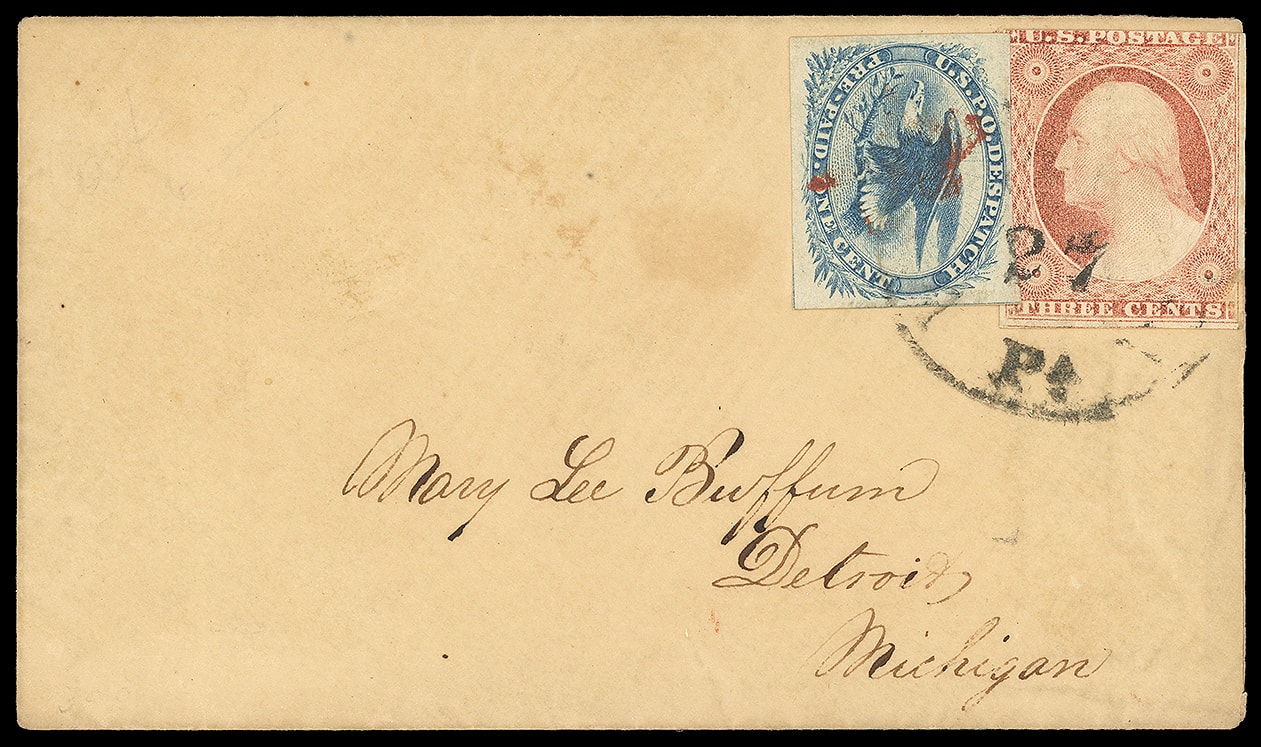 U.S.P.O. DESPATCH
PRE-PAID ONE CENT
U.S. POSTAGE
THREE CENTS
27
Mary Lee Buffum
Detroit
Michigan